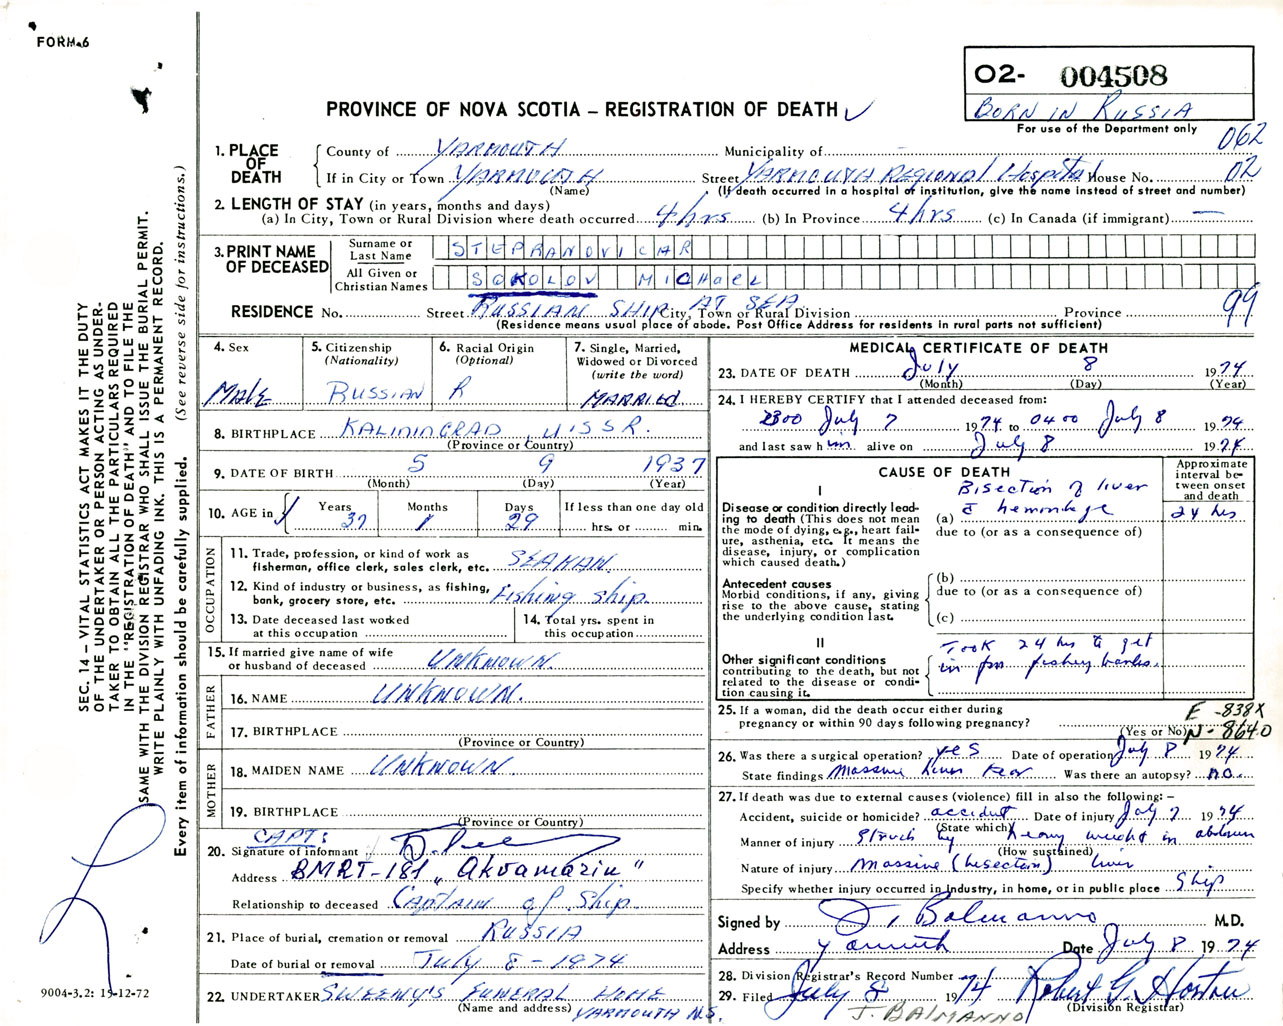 FORM 6
O2- 004508
BORN IN RUSSIA
For use of the Department only
PROVINCE OF NOVA SCOTIA – REGISTRATION OF DEATH
062
1. PLACE OF DEATH
County of YARMOUTH Municipality of –
If in City or Town YARMOUTH Street YARMOUTH REGIONAL Hospital House No. 02
(Name) (If death occurred in a hospital or institution, give the name instead of street and number)
2. LENGTH OF STAY (in years, months and days)
(a) In City, Town or Rural Division where death occurred 4 hrs (b) In Province 4 hrs (c) In Canada (if immigrant) —
3. PRINT NAME OF DECEASED
Surname or Last Name STEPRANOVICAR
All Given or Christian Names SOKOLOV MICHAEL
RESIDENCE No. Street RUSSIAN SHIP AT SEA City, Town or Rural Division Province 99
(Residence means usual place of abode. Post Office Address for residents in rural parts not sufficient)
4. Sex
Male
5. Citizenship (Nationality)
RUSSIAN
6. Racial Origin (Optional)
R
7. Single, Married, Widowed or Divorced (write the word)
MARRIED
8. BIRTHPLACE KALININGRAD, U.S.S.R.
(Province or Country)
9. DATE OF BIRTH 5 9 1937
(Month) (Day) (Year)
10. AGE in
Years 37
Months 1
Days 29
If less than one day old
hrs. or min.
OCCUPATION
11. Trade, profession, or kind of work as fisherman, office clerk, sales clerk, etc. SEAMAN.
12. Kind of industry or business, as fishing, bank, grocery store, etc. Fishing Ship.
13. Date deceased last worked at this occupation
14. Total yrs. spent in this occupation
15. If married give name of wife or husband of deceased UNKNOWN.
FATHER
16. NAME UNKNOWN.
17. BIRTHPLACE
(Province or Country)
MOTHER
18. MAIDEN NAME UNKNOWN.
19. BIRTHPLACE
(Province or Country)
CAPT:
20. Signature of informant
Address BMRT-181 „Akvamarin"
Relationship to deceased Captain of Ship
21. Place of burial, cremation or removal RUSSIA
Date of burial or removal July 8 - 1974
22. UNDERTAKER SWEENY'S FUNERAL HOME
(Name and address) YARMOUTH N.S.
MEDICAL CERTIFICATE OF DEATH
23. DATE OF DEATH July 8 1974
(Month) (Day) (Year)
24. I HEREBY CERTIFY that I attended deceased from:
2300 July 7 1974 to 0400 July 8 1974
and last saw him alive on July 8 1974
CAUSE OF DEATH
Approximate interval between onset and death
I
Disease or condition directly leading to death (This does not mean the mode of dying, e.g., heart failure, asthenia, etc. It means the disease, injury, or complication which caused death.)
Bisection of liver
(a) c̄ hemorrhage 24 hrs
due to (or as a consequence of)
Antecedent causes
Morbid conditions, if any, giving rise to the above cause, stating the underlying condition last.
(b)
due to (or as a consequence of)
(c)
II
Other significant conditions contributing to the death, but not related to the disease or condition causing it.
Took 24 hrs to get
in from fishing banks.
25. If a woman, did the death occur either during pregnancy or within 90 days following pregnancy?
(Yes or No)
E -838X
N - 8640
26. Was there a surgical operation? yes Date of operation July 8 1974
State findings Massive liver tear Was there an autopsy? no.
27. If death was due to external causes (violence) fill in also the following: –
Accident, suicide or homicide? accident Date of injury July 7 1974
(State which)
Manner of injury Struck by heavy weight in abdomen
(How sustained)
Nature of injury Massive (bisection) liver
Specify whether injury occurred in Industry, in home, or in public place Ship
Signed by J. Balmanno M.D.
Address Yarmouth Date July 8 1974
28. Division Registrar's Record Number
29. Filed July 8 1974 Robert G. Horton
(Division Registrar)
J. BALMANNO
SEC. 14 – VITAL STATISTICS ACT MAKES IT THE DUTY
OF THE UNDERTAKER OR PERSON ACTING AS UNDER-
TAKER TO OBTAIN ALL THE PARTICULARS REQUIRED
IN THE "REGISTRATION OF DEATH" AND TO FILE THE
SAME WITH THE DIVISION REGISTRAR WHO SHALL ISSUE THE BURIAL PERMIT.
WRITE PLAINLY WITH UNFADING INK. THIS IS A PERMANENT RECORD.
Every item of information should be carefully supplied. (See reverse side for instructions.)
9004-3.2: 15-12-72